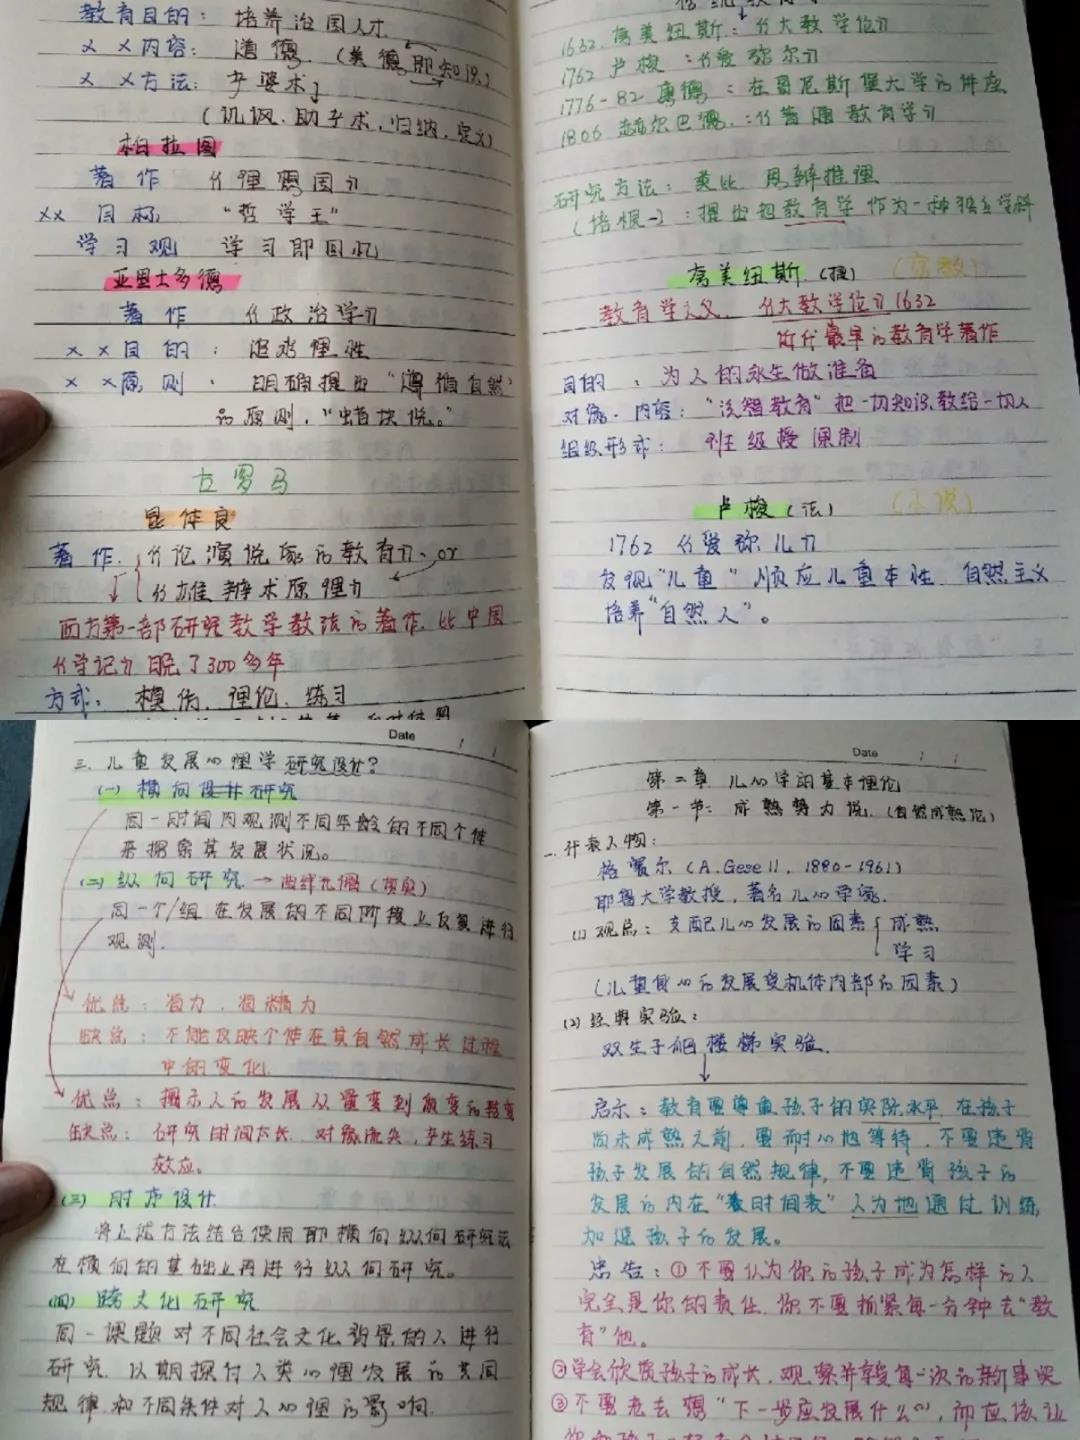 教育目的: 培养治国人才
× ×内容: 道德. (美德即知识.)
× ×方法: 产婆术」
(讥讽. 助产术. 归纳. 定义)
柏拉图
著作 《理想国》
×× 目标 "哲学王"
学习观 学习即回忆
亚里士多德
著作 《政治学》
× ×目的: 追求理性
× ×原则: 明确提出"遵循自然"
的原则. "蜡块说。"
古罗马
昆体良
著作. 《论演说家的教育》. or
《雄辩术原理》
西方第一部研究教学教法的著作. 比中国
《学记》晚了300多年
方式: 模仿. 理论. 练习
1632. 夸美纽斯: 《大教学论》
1762 卢梭: 《爱弥尔》
1776-82 康德: 在哥尼斯堡大学的讲座
1806 赫尔巴德.: 《普通教育学》
研究方法: 类比. 思辨推理
(培根-): 提出把教育学作为一种独立学科
夸美纽斯 (捷) (宗教)
教育学之父. 《大教学论》1632
近代最早的教育学著作
目的: 为人的永生做准备
对象. 内容: "泛智教育" 把一切知识教给一切人
组织形式: 班级授课制
卢梭 (法) (小说)
1762 《爱弥儿》
发现"儿童" 顺应儿童本性. 自然主义
培养"自然人"。
Date
三. 儿童发展心理学研究设计?
(一) 横向设计研究
同一时间内观测不同年龄的不同个体
来探索其发展状况。
(二) 纵向研究 →
同一个/组 在发展的不同阶段上反复进行
观测.
优点: 省力. 省精力
缺点: 不能反映个体在其自然成长过程
中的变化.
优点: 揭示人的发展从量变到质变的
缺点: 研究时间太长. 对象流失. 产生练习
效应。
(三) 时序设计
将上述方法结合使用即横向纵向研究法
在横向的基础上再进行纵向研究。
(四) 跨文化研究
同一课题对不同社会文化背景的人进行
研究. 以期探讨人类心理发展的共同
规律和不同条件对人心理的影响.
Date
第二章 儿心学的基本理论
第一节: 成熟势力说. (自然成熟论)
一. 代表人物:
格赛尔 (A.Gesell. 1880-1961)
耶鲁大学教授. 著名儿心学家.
(1) 观点: 支配儿心发展的因素 { 成熟
学习
(儿童身心的发展受机体内部的因素)
(2) 经典实验:
双生子爬楼梯实验.
启示: 教育要尊重孩子的实际水平. 在孩子
尚未成熟之前. 要耐心地等待. 不要违背
孩子发展的自然规律, 不要违背孩子的
发展的内在"时间表" 人为地通过训练
加速孩子的发展。
忠告: ①不要认为你的孩子成为怎样的人
完全是你的责任. 你不要抓紧每一分钟去"教
育"他。
②学会欣赏孩子的成长. 观察并享受每一次的新事实
③不要老去想"下一步应发展什么". 而应该让